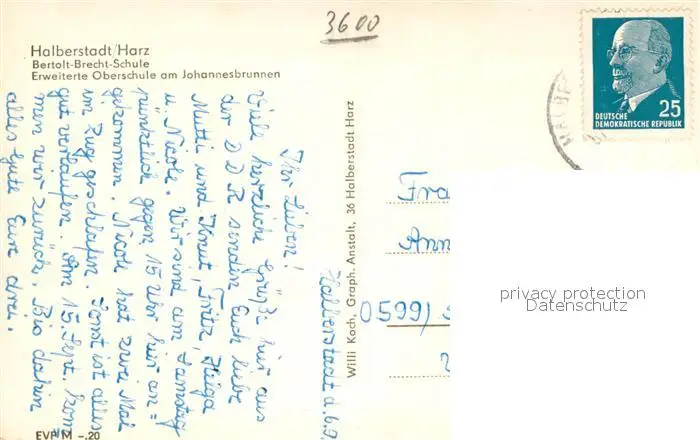 3600
Halberstadt/Harz
Bertolt-Brecht-Schule
Erweiterte Oberschule am Johannesbrunnen
Halberstadt d. 6.9.
Ihr Lieben!
Viele herzliche Grüße hier aus
der DDR senden Euch liebe
Mutti und Knut, Fritz, Helga
u. Nicole. Wir sind am Samstag
pünktlich gegen 15 Uhr hier an=
gekommen. Nicole hat zwei Mal
im Zug geschlafen. Sonst ist alles
gut verlaufen. Am 15. Sept. kom=
men wir zurück. Bis dahin
alles Gute Eure drei.
EVP M -.20
Willi Koch, Graph. Anstalt, 36 Halberstadt Harz
25
DEUTSCHE
DEMOKRATISCHE REPUBLIK
Fra
Ann
0599)
privacy protection
Datenschutz